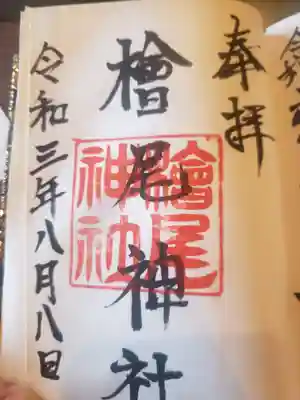 奉拝
檜尾神社
檜尾
神社
令和三年八月八日